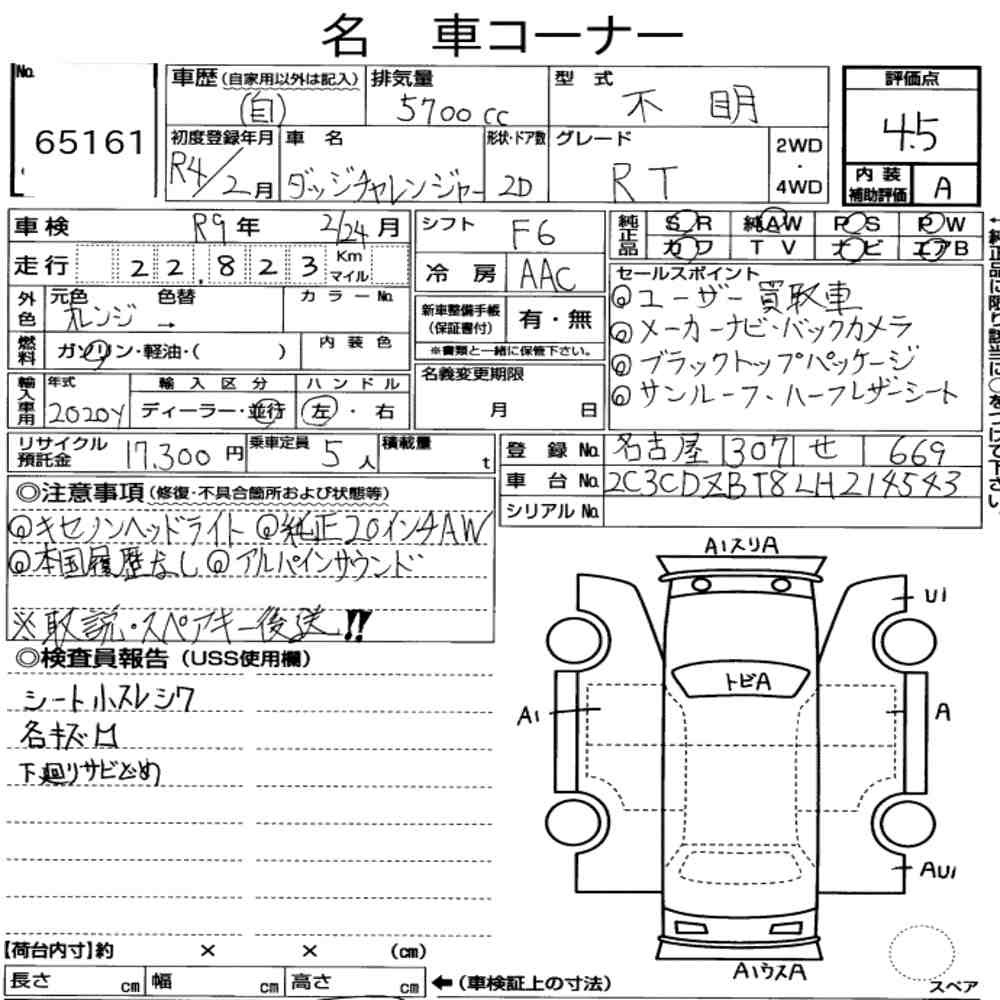 名 車コーナー
No.
65161
車歴 (自家用以外は記入)
(自)
排気量
5700 cc
型式
不明
評価点
4.5
初度登録年月
R4/2月
車名
ダッジチャレンジャー
形状・ドア数
2D
グレード
RT
2WD
・
4WD
内装
補助評価
A
車検
R9年 2/24月
シフト
F6
純正品
S R
純AW
P S
P W
カワ
T V
ナビ
エアB
走行
22,823
Km
マイル
冷房
AAC
外色
元色
オレンジ
色替
→
カラーNo.
新車整備手帳
(保証書付)
有・無
※書類と一緒に保管下さい。
セールスポイント
◎ユーザー買取車
◎メーカーナビ・バックカメラ
◎ブラックトップパッケージ
◎サンルーフ、ハーフレザーシート
燃料
ガソリン・軽油・( )
内装色
名義変更期限
月 日
輸入車用
年式
2020Y
輸入区分
ディーラー・並行
ハンドル
左・右
リサイクル
預託金
17,300円
乗車定員
5人
積載量
t
登録No.
名古屋 307 せ 669
車台No.
2C3CDZBT8LH214543
シリアルNo.
◎注意事項 (修復・不具合箇所および状態等)
◎キセノンヘッドライト ◎純正20インチAW
◎本国履歴なし ◎アルパインサウンド
※取説・スペアキー後送!!
◎検査員報告 (USS使用欄)
シート小スレシワ
名キズ凹
下廻りサビ止め
A1スリA
U1
トビA
A1
A
AU1
A1ウスA
スペア
【荷台内寸】約 × × (cm)
長さ cm
幅 cm
高さ cm
←(車検証上の寸法)